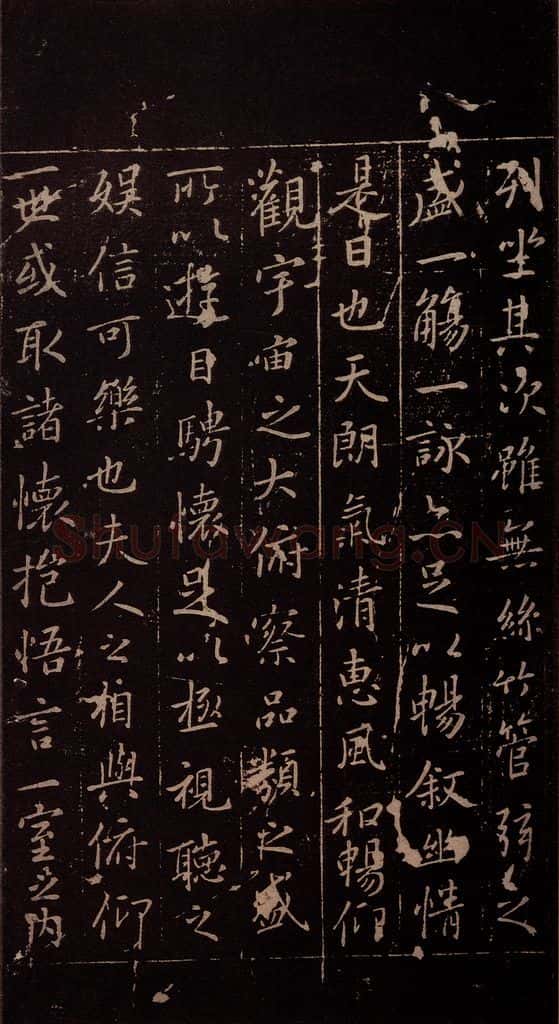 列坐其次雖無絲竹管弦之
盛一觴一詠亦足以暢敘幽情
是日也天朗氣清惠風和暢仰
觀宇宙之大俯察品類之盛
所以遊目騁懷足以極視聽之
娛信可樂也夫人之相與俯仰
一世或取諸懷抱悟言一室之內
Shufawang.CN